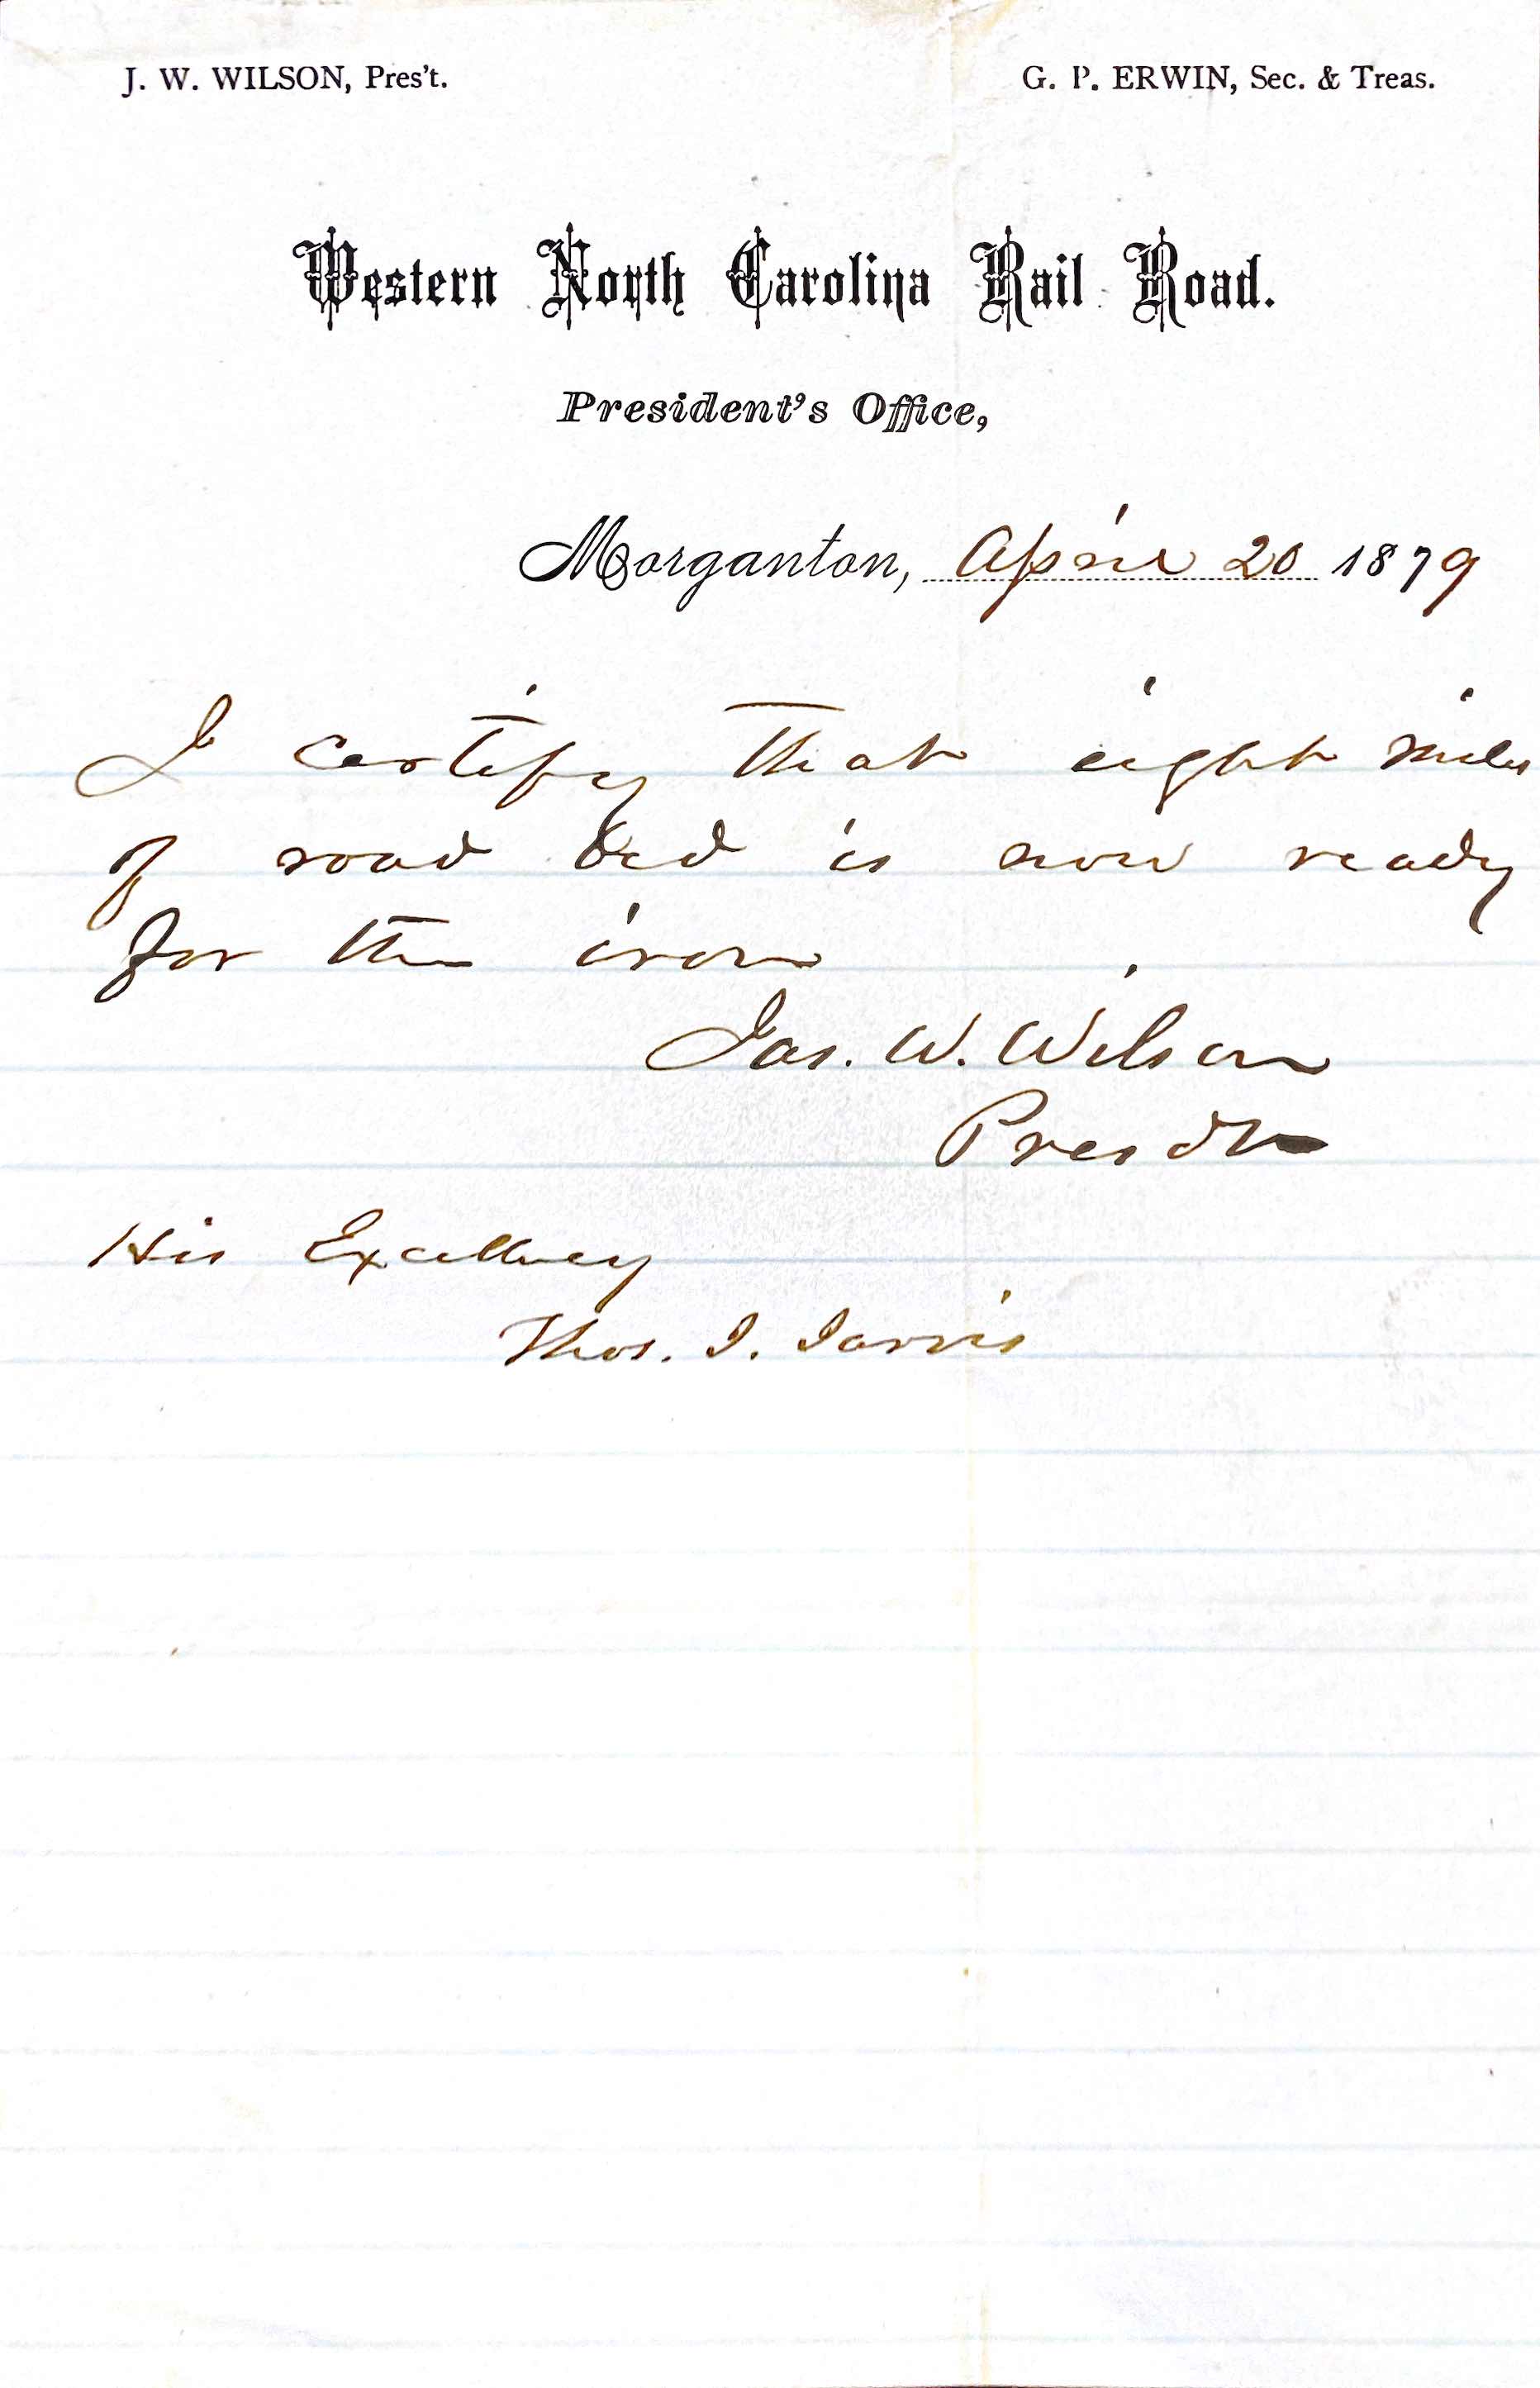 J. W. WILSON, Pres't.
G. P. ERWIN, Sec. & Treas.
Western North Carolina Rail Road.
President's Office,
Morganton, April 20 1879
I certify that eight miles
of road bed is now ready
for the iron
Jas. W. Wilson
Presdt
His Excellency
Thos. J. Jarvis